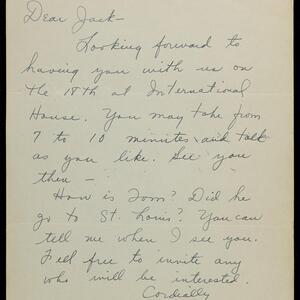 Dear Jack-
Looking forward to
having you with us on
the 18th at International
House. You may take from
7 to 10 minutes and talk
as you like. See you
then -
How is Tom? Did he
go to St. Louis? You can
tell me when I see you.
Feel free to invite any
who will be interested.
Cordially